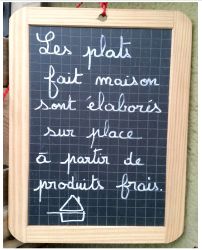 Les plats
fait maison
sont élaborés
sur place
à partir de
produits frais.